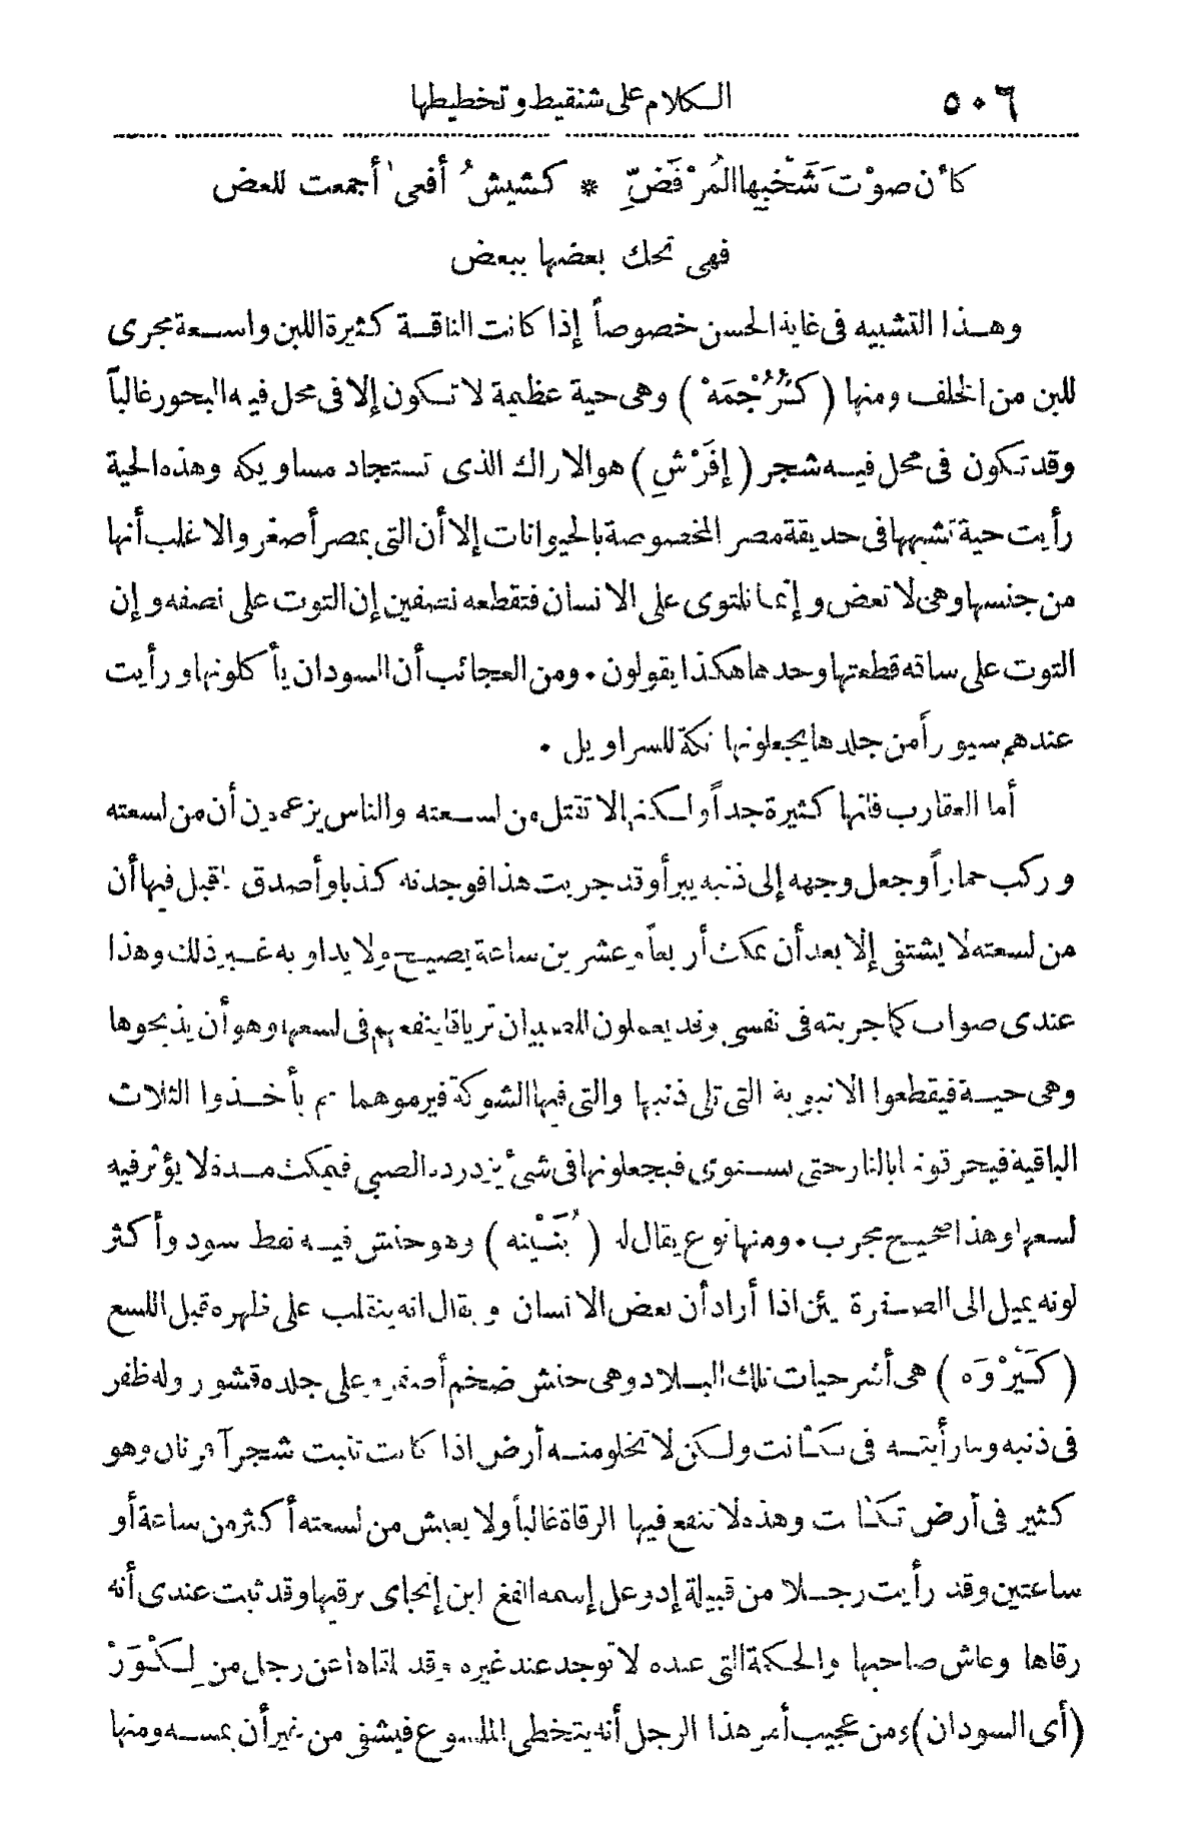 ٥٠٦ الكلام على شنقيط وتخطيطها
كأن صوْتَ شَخْبِها المُرْفَضِّ * كشيشُ أفعى أجمعت للعض
فهى تحك بعضها ببعض
وهذا التشبيه فى غاية الحسن خصوصاً إذا كانت الناقة كثيرة اللبن واسعة مجرى
للبن من الخلف ومنها ( كَرُرُجْمَهْ ) وهى حية عظيمة لا تكون إلا فى محل فيه البحور غالباً
وقد تكون فى محل فيه شجر ( إفَرْشِ ) هو الاراك الذى تستجاد مساويكه وهذه الحية
رأيت حية تشبهها فى حديقة مصر المخصوصة بالحيوانات إلا أن التى بمصر أصغر والاغلب أنها
من جنسها وهى لا تعض وإنما تلتوى على الانسان فتقطعه نصفين إن التوت على نصفه وإن
التوت على ساقه قطعتها وحدها هكذا يقولون . ومن العجائب أن السودان يأكلونها ورأيت
عندهم سيوراً من جلدها يجعلونها تكة للسراويل .
أما العقارب فانها كثيرة جداً ولكنها لا تقتل من لسعته والناس يزعمون أن من لسعته
وركب حماراً وجعل وجهه إلى ذنبه يبرأ وقد جربت هذا فوجدته كذبا وأصدق ما قيل فيها أن
من لسعته لا يشتفى إلا بعد أن يمكث أربعاً وعشرين ساعة يصيح ولا يداويه غير ذلك وهذا
عندى صواب كما جربته فى نفسى وقد يعملون للصبيان ترياقا ينفعهم فى لسعها وهو أن يذبحوها
وهى حية فيقطعوا الانبوبة التى تلى ذنبها والتى فيها الشوكة فيرموهما ثم يأخذوا الثلاث
الباقية فيحرقونها بالنار حتى تستوى فيجعلونها فى شىء يزدرده الصبى فيمكث مدة لا يؤثر فيه
لسعها وهذا صحيح مجرب . ومنها نوع يقال له ( بُنَيْنه ) وهو حنش فيه نقط سود وأكثر
لونه يميل الى الصفرة يئن اذا أراد أن يعض الانسان ويقال انه ينقلب على ظهره قبل اللسع
( كَيَرْوَه ) هى أشر حيات تلك البلاد وهى حنش ضخم أصفر وعلى جلده قشور وله ظفر
فى ذنبه وما رأيته فى تكانت ولكن لا تخلو منه أرض اذا كانت تنبت شجر آدرنان وهو
كثير فى أرض تكانت وهذه لا تنفع فيها الرقاة غالباً ولا يعيش من لسعته أكثر من ساعة أو
ساعتين وقد رأيت رجلا من قبيلة إدوعل إسمه الفغ ابن إنجاى يرقيها وقد ثبت عندى أنه
رقاها وعاش صاحبها والحكمة التى عنده لا توجد عند غيره وقد تلقاها عن رجل من لِكْوَرْ
(أى السودان) ومن عجيب أمر هذا الرجل أنه يتخطى الملسوع فيشفى من غير أن يمسه ومنها